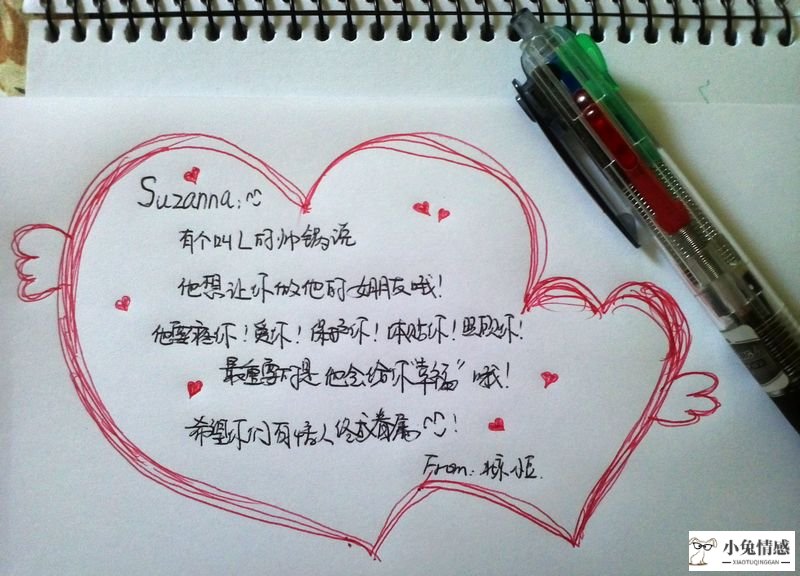 Suzanna:
有个叫L的帅锅说
他想让你做他的女朋友哦!
他要疼你!爱你!保护你!体贴你!照顾你!
最重要的是他会给你“幸福”哦!
希望你们有情人终成眷属!
From:
小兔情感
XIAOTUQINGGAN